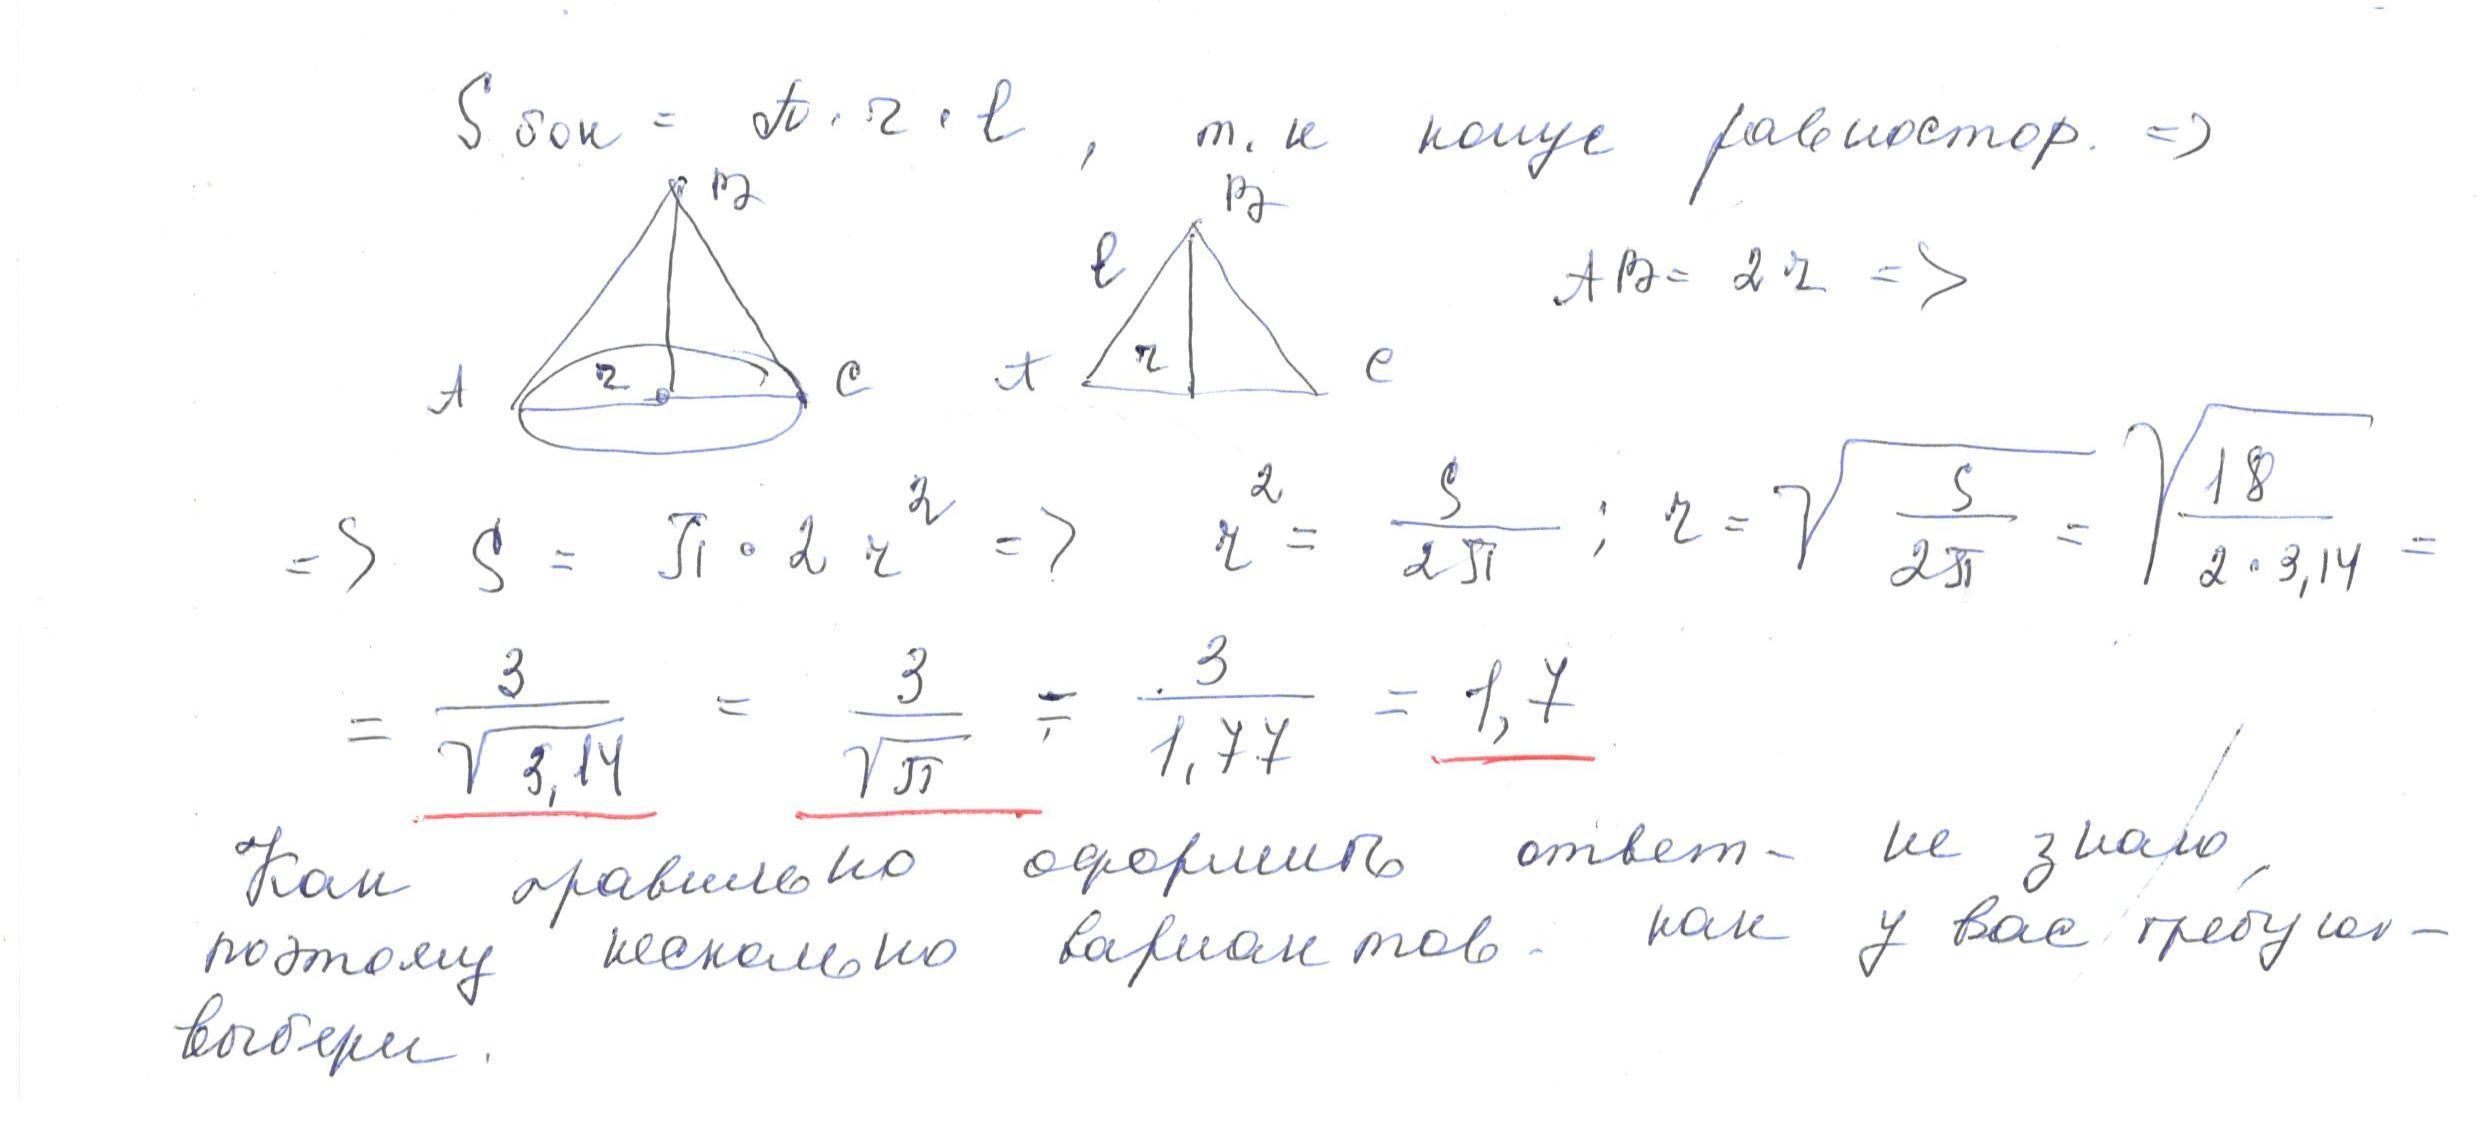 S бок = π · r · l , т. к конус равностор. =>
B B
l
AB = 2r =>
A r C A r C
=> S = π · 2 r² => r² = S/2π ; r = √(S/2π) = √(18/(2 · 3,14)) =
= 3/√3,14 = 3/√π = 3/1,77 = 1,7
Как правильно оформить ответ - не знаю,
поэтому несколько вариантов - как у вас требуют -
выбери.